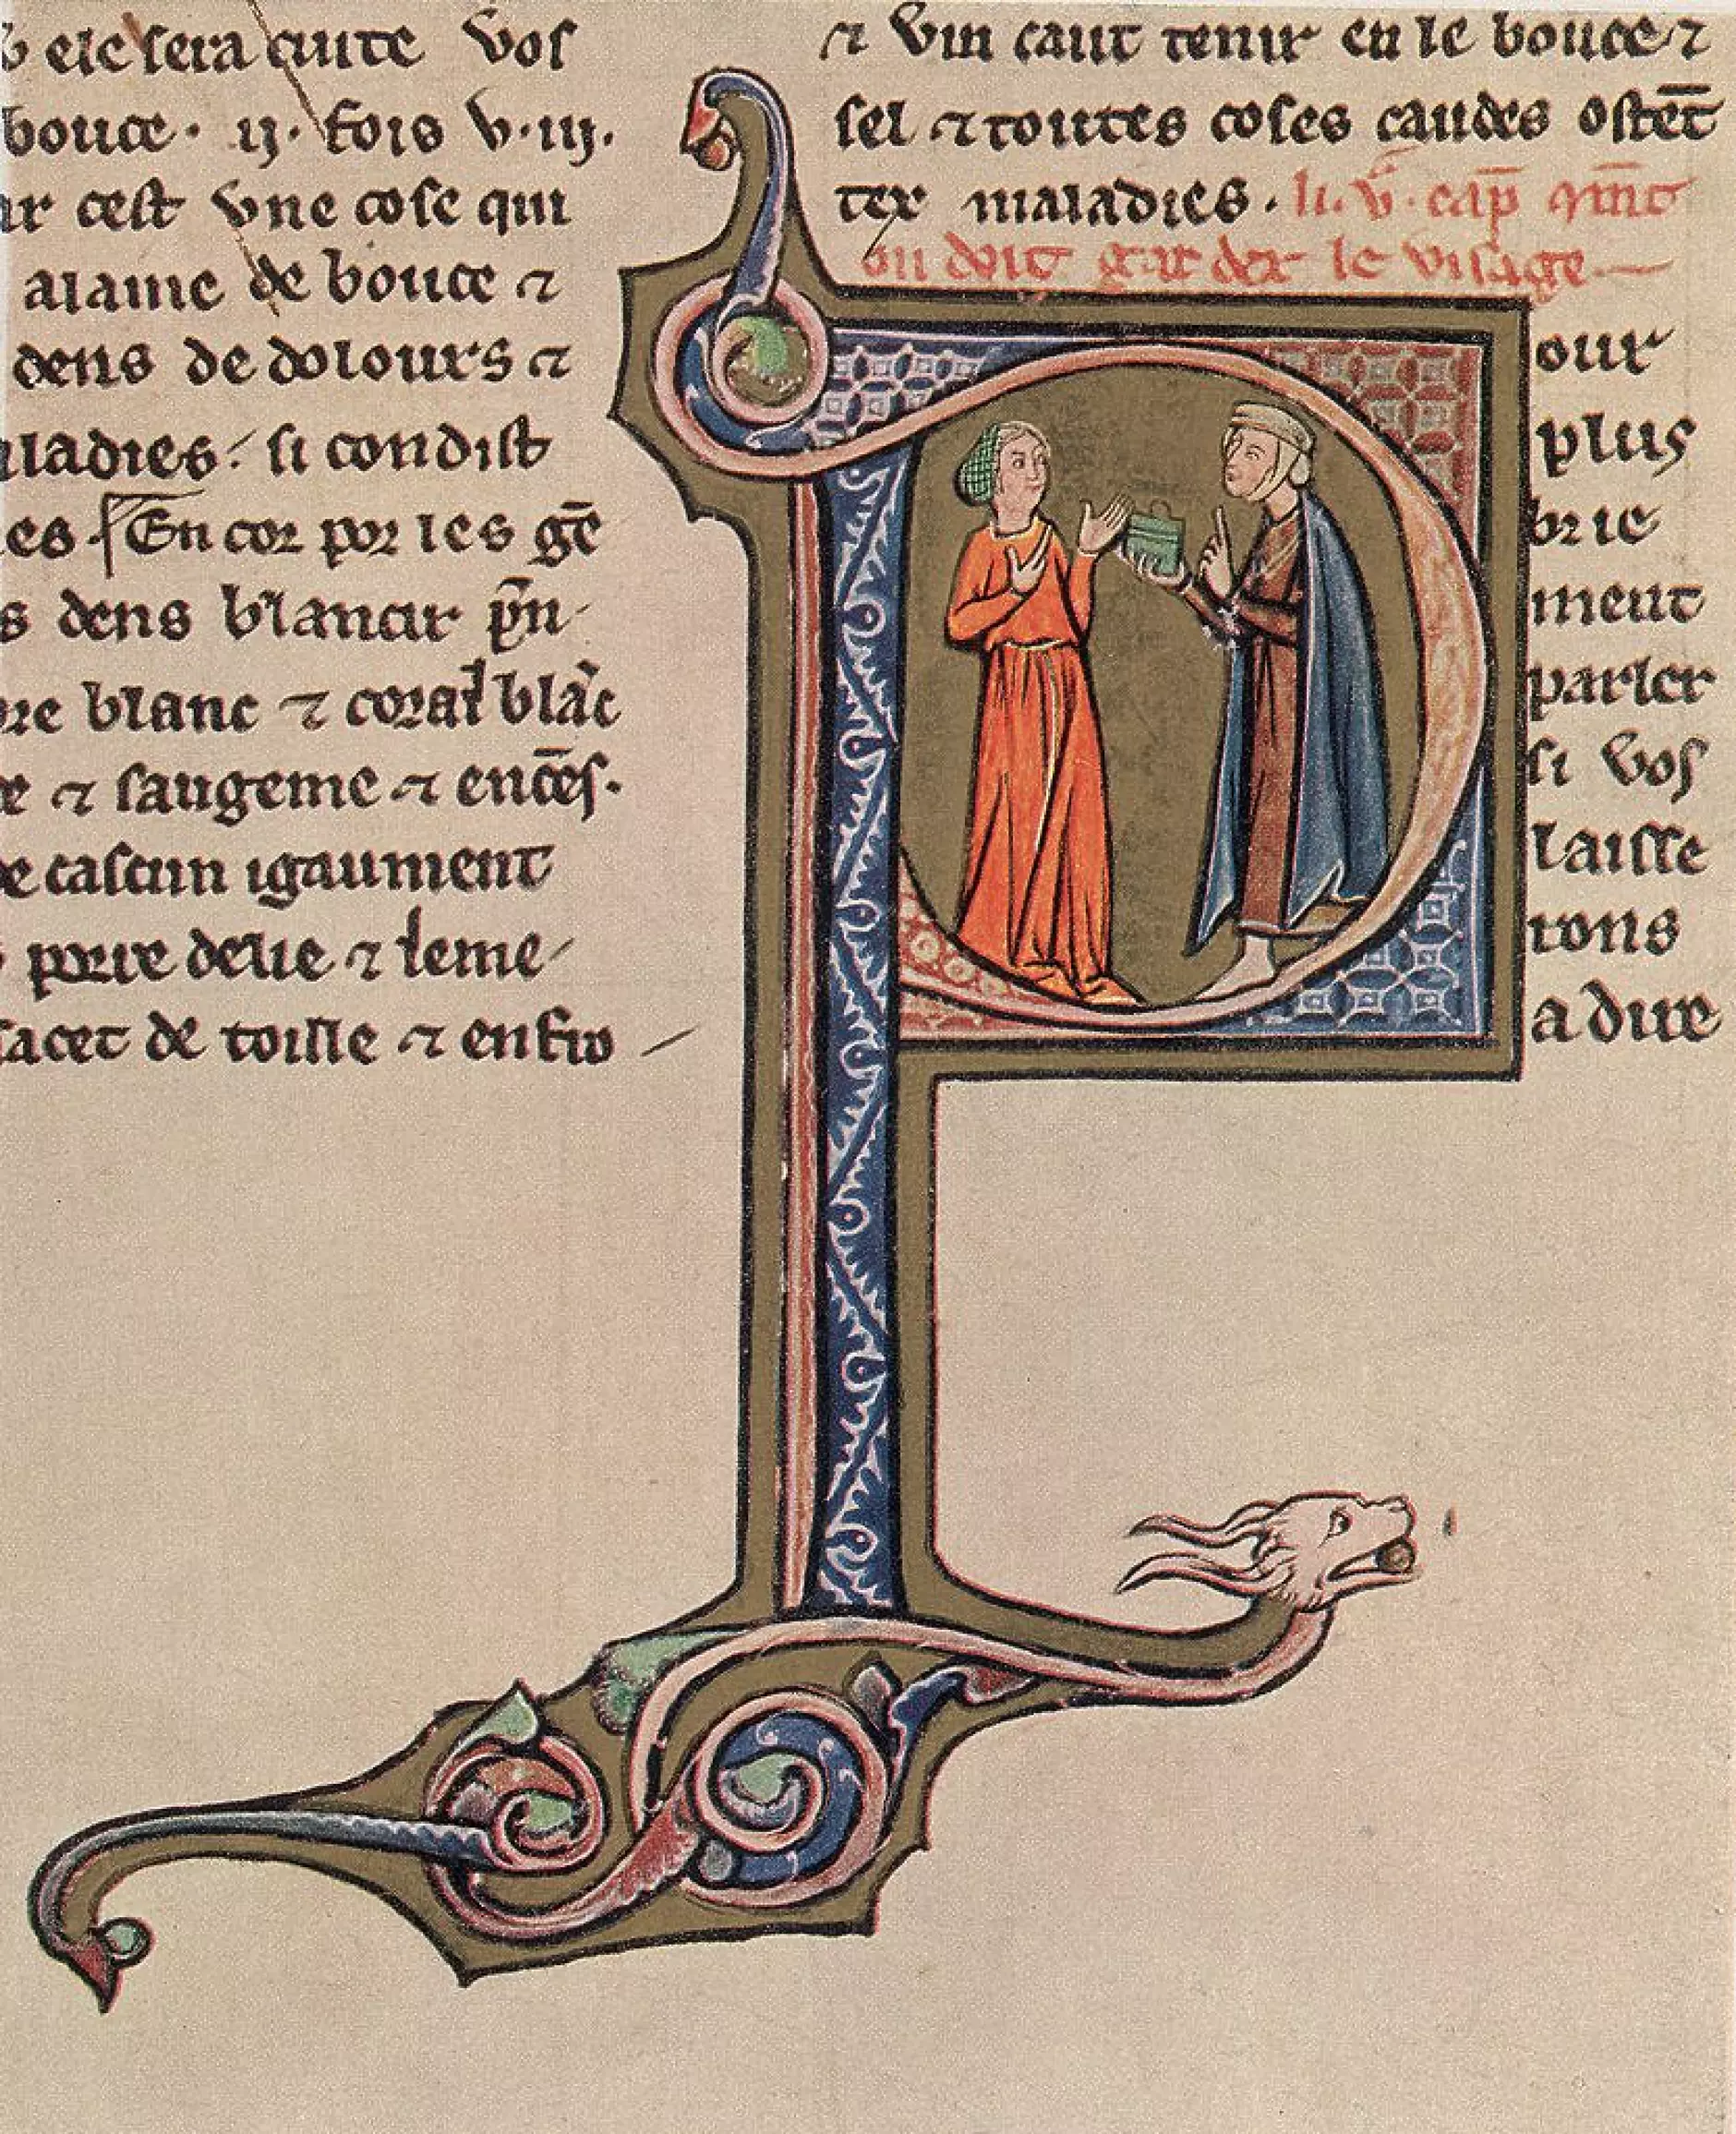 ele sera cuite vos
bouce · ij · fois v · iij ·
ar cest vne cose qui
alaine de bouce ⁊
dens de dolours ⁊
ladies si condist
es En cor por les gē
s dens blancir pñ
re blanc ⁊ coral blāc
⁊ saugeme ⁊ encēs ·
e cascun igaument
porre delie ⁊ leme
sacet de toille ⁊ en fro
⁊ vin caut tenir en le bouce ⁊
sel ⁊ toutes coses caudes ostēt
tex maladies · li · v · cap̄ qm̄t
on doit garder le visage
Pour
plus
brie
ment
parler
si vos
laisse
rons
a dire